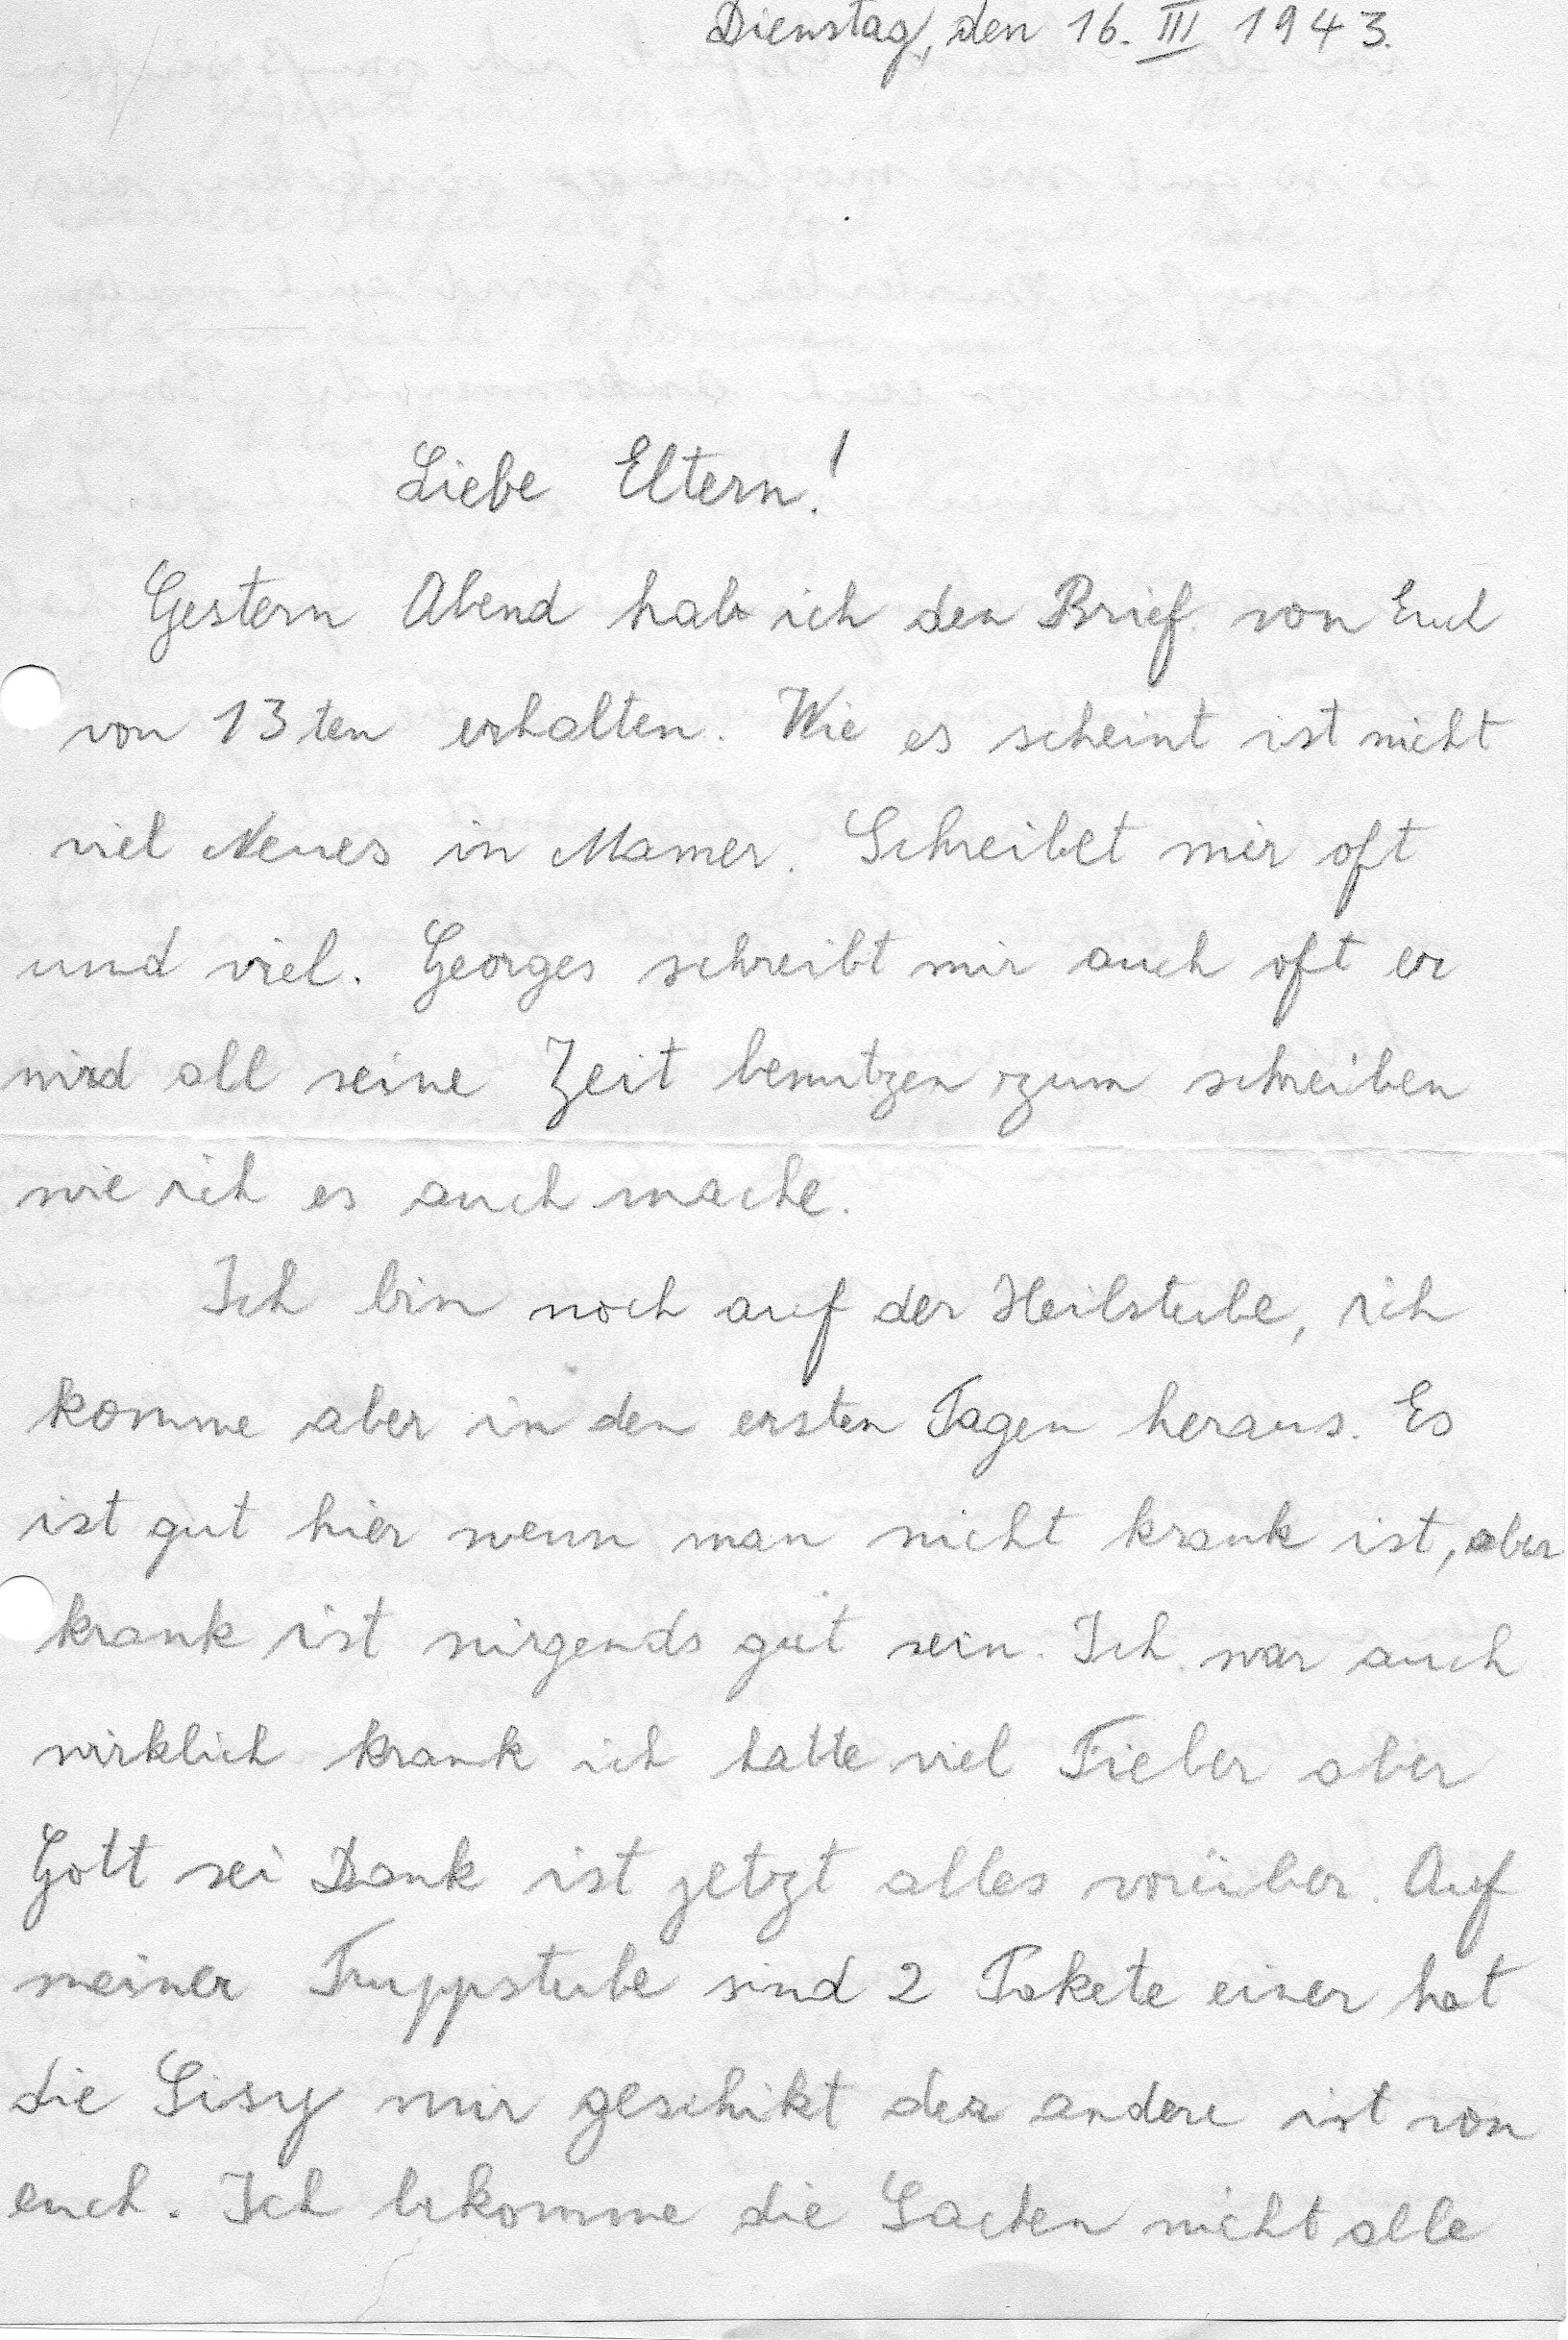 Dienstag, den 16. III 1943.
Liebe Eltern!
Gestern Abend hab ich den Brief von Euch
von 13ten erhalten. Wie es scheint ist nicht
viel Neues in Mamer. Schreibet mir oft
und viel. Georges schreibt mir auch oft er
wird all seine Zeit benutzen zum schreiben
wie ich es auch mache.
Ich bin noch auf der Heilstube, ich
komme aber in den ersten Tagen heraus. Es
ist gut hier wenn man nicht krank ist, aber
krank ist nirgends gut sein. Ich war auch
wirklich krank ich hatte viel Fieber aber
Gott sei Dank ist jetzt alles vorüber. Auf
meiner Truppstube sind 2 Pakete einer hat
die Sisy mir geschikt der andere ist von
euch. Ich bekomme die Sachen nicht alle